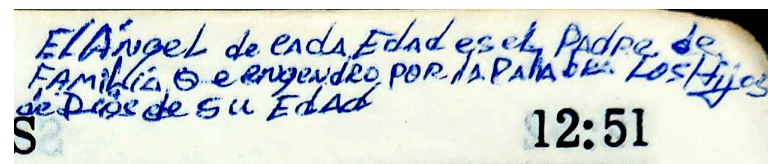 El Ángel de cada Edad es el Padre de
Familia que engendró por la Palabra Los Hijos
de Dios de su Edad
S 12:51